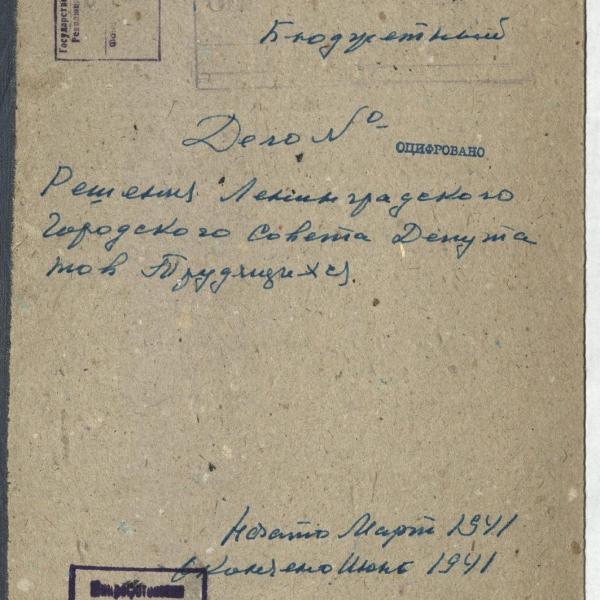 Государственн
Революц
Бюджетный
Дело №
ОЦИФРОВАНО
Решения Ленинградского
Городского Совета Депута
тов Трудящихся
Начато Март 1941
Окончено Июнь 1941